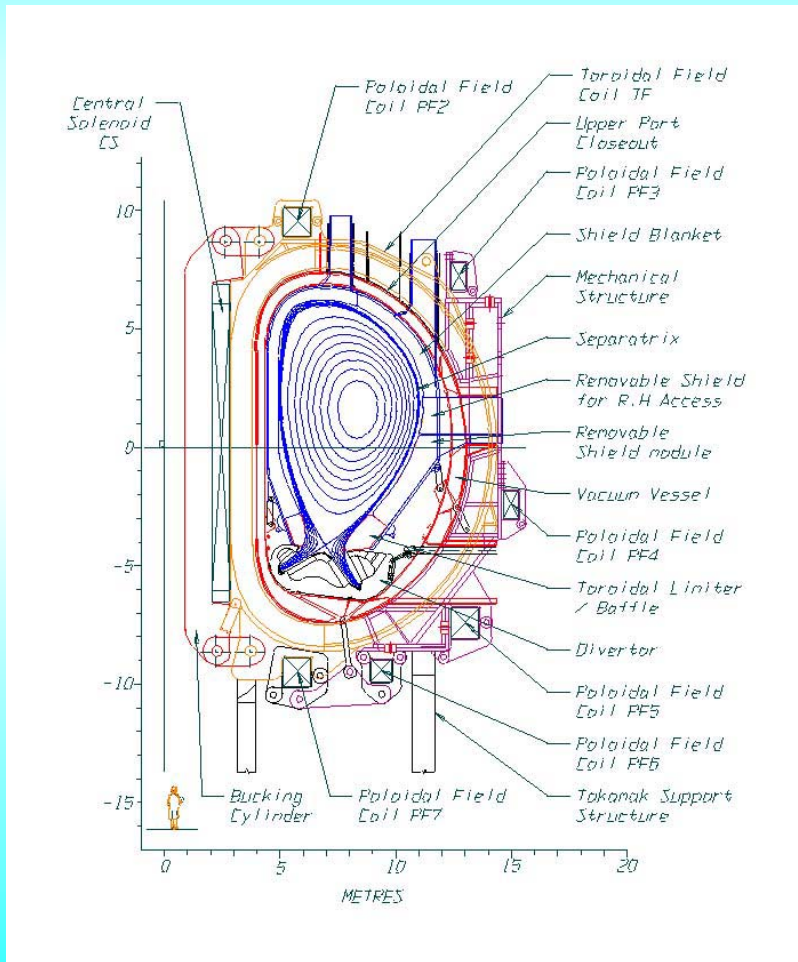 Poloidal Field
Coil PF2
Central
Solenoid
CS
Toroidal Field
Coil TF
Upper Port
Closeout
Poloidal Field
Coil PF3
Shield Blanket
Mechanical
Structure
Separatrix
Removable Shield
for R.H Access
Removable
Shield module
Vacuum Vessel
Poloidal Field
Coil PF4
Toroidal Limiter
/ Baffle
Divertor
Poloidal Field
Coil PF5
Poloidal Field
Coil PF6
Tokamak Support
Structure
Bucking
Cylinder
Poloidal Field
Coil PF7
10
5
0
-5
-10
-15
0 5 10 15 20
METRES